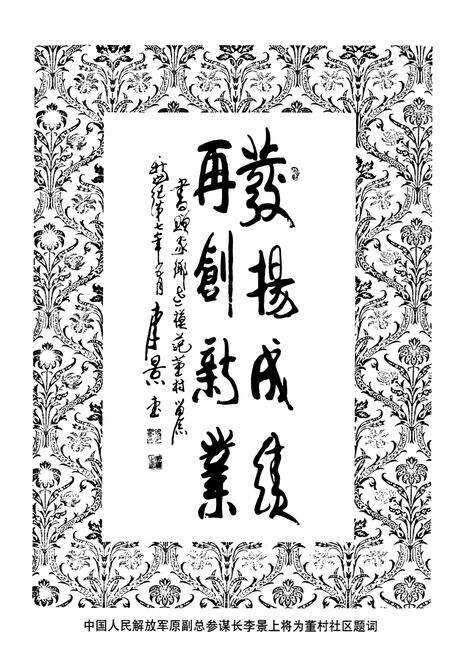 發揚成績
再創新業
書贈家鄉模範董村
新世纪第七年
李景
中国人民解放军原副总参谋长李景上将为董村社区题词